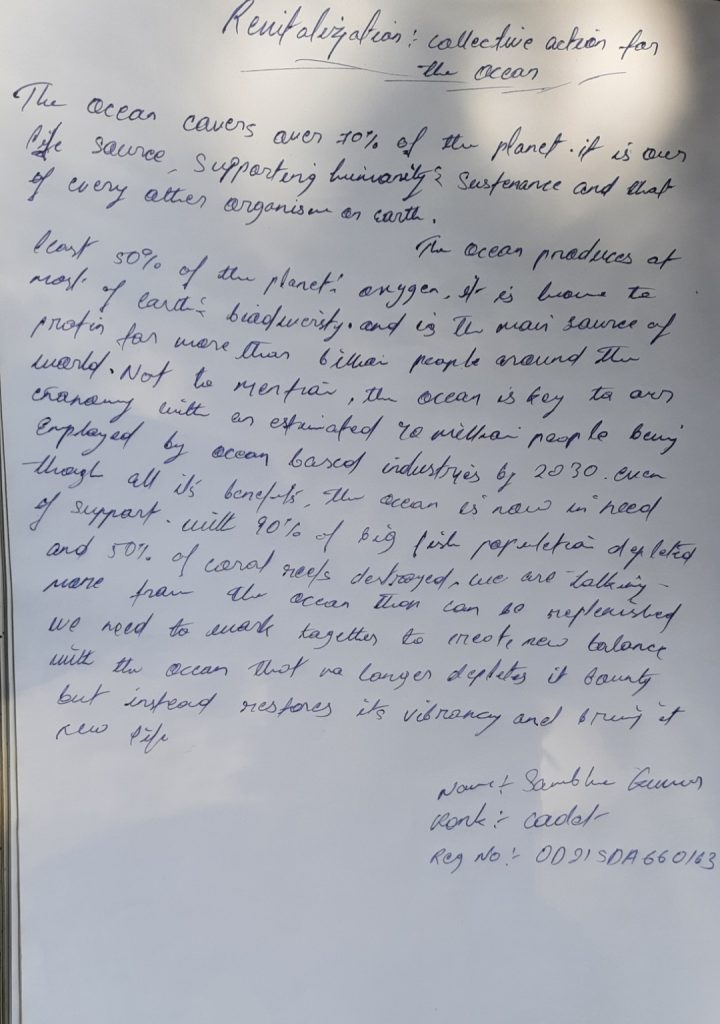 Revitalization : collective action for
the ocean
The ocean covers over 70% of the planet. it is our
life source, supporting humanity's sustenance and that
of every other organism on earth.
The ocean produces at
least 50% of the planet's oxygen, it is home to
most of earth's biodiversity. and is the main source of
protin for more than billion people around the
world. Not to mention, the ocean is key to our
economy with an estimated 40 million people being
employed by ocean based industries by 2030. even
though all its benefits, the ocean is now in need
of support. with 90% of big fish population depleted
and 50% of coral reefs destroyed. we are talking
more from the ocean than can be replenished
we need to work together to create new balance
with the ocean that no longer depletes it bounty
but instead restores its vibrancy and bring it
new life
Name :- Sambhu
Rank :- cadet
Reg No :- OD21SDA660163